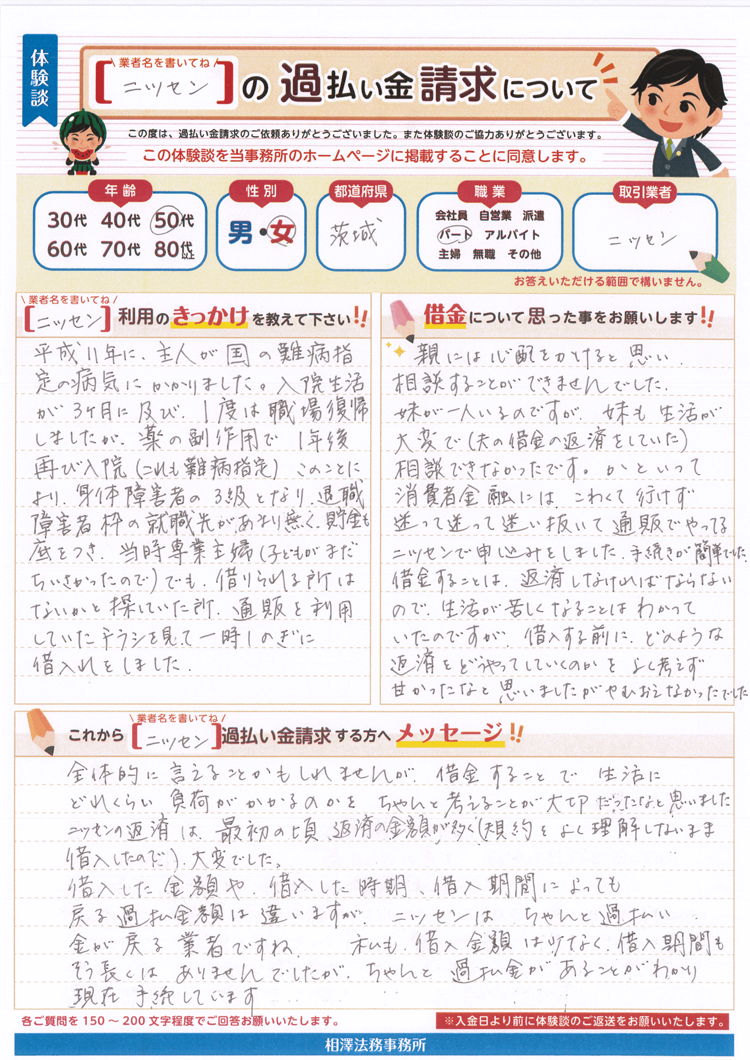 体験談
業者名を書いてね
[ニッセン]の過払い金請求について
この度は、過払い金請求のご依頼ありがとうございました。また体験談のご協力ありがとうございます。
この体験談を当事務所のホームページに掲載することに同意します。
年齢
30代 40代 50代
60代 70代 80代以上
性別
男・女
都道府県
茨城
職業
会社員 自営業 派遣
パート アルバイト
主婦 無職 その他
取引業者
ニッセン
お答えいただける範囲で構いません。
業者名を書いてね
[ニッセン]利用のきっかけを教えて下さい!!
平成11年に、主人が国の難病指
定の病気にかかりました。入院生活
が3ヶ月に及び、1度は職場復帰
しましたが、薬の副作用で1年後
再び入院(これも難病指定)このことに
より、身体障害者の3級となり、退職
障害者枠の就職先があまり無く、貯金も
底をつき、当時専業主婦(子どもがまだ
ちいさかったので)でも、借りられる所は
ないかと探していた所、通販を利用
していたチラシを見て一時しのぎに
借入れをしました.
借金について思った事をお願いします!!
親には心配をかけると思い、
相談することができませんでした.
妹が一人いるのですが、妹も生活が
大変で(夫の借金の返済をしていた)
相談できなかったです。かといって
消費者金融には、こわくて行けず
迷って迷って迷い抜いて通販でやってる
ニッセンで申し込みをしました.手続きが簡単でした
借金することは、返済しなければならない
ので、生活が苦しくなることはわかって
いたのですが、借入する前に、どのような
返済をどうやってしていくのかをよく考えず
甘かったなと思いましたがやむおえなかったでした
業者名を書いてね
これから[ニッセン]過払い金請求する方へメッセージ!!
全体的に言えることかもしれませんが、借金することで生活に
どれくらい負荷がかかるのかをちゃんと考えることが大切だったなと思いました
ニッセンの返済は、最初の頃、返済の金額が多く(規約をよく理解しないまま
借入したので)、大変でした。
借入した金額や、借入した時期、借入期間によっても
戻る過払金額は違いますが、ニッセンはちゃんと過払い
金が戻る業者ですね. 私も、借入金額は少なく、借入期間も
そう長くはありませんでしたが、ちゃんと過払金があることがわかり
現在手続しています
各ご質問を150～200文字程度でご回答お願いいたします。
※入金日より前に体験談のご返送をお願いいたします。
相澤法務事務所